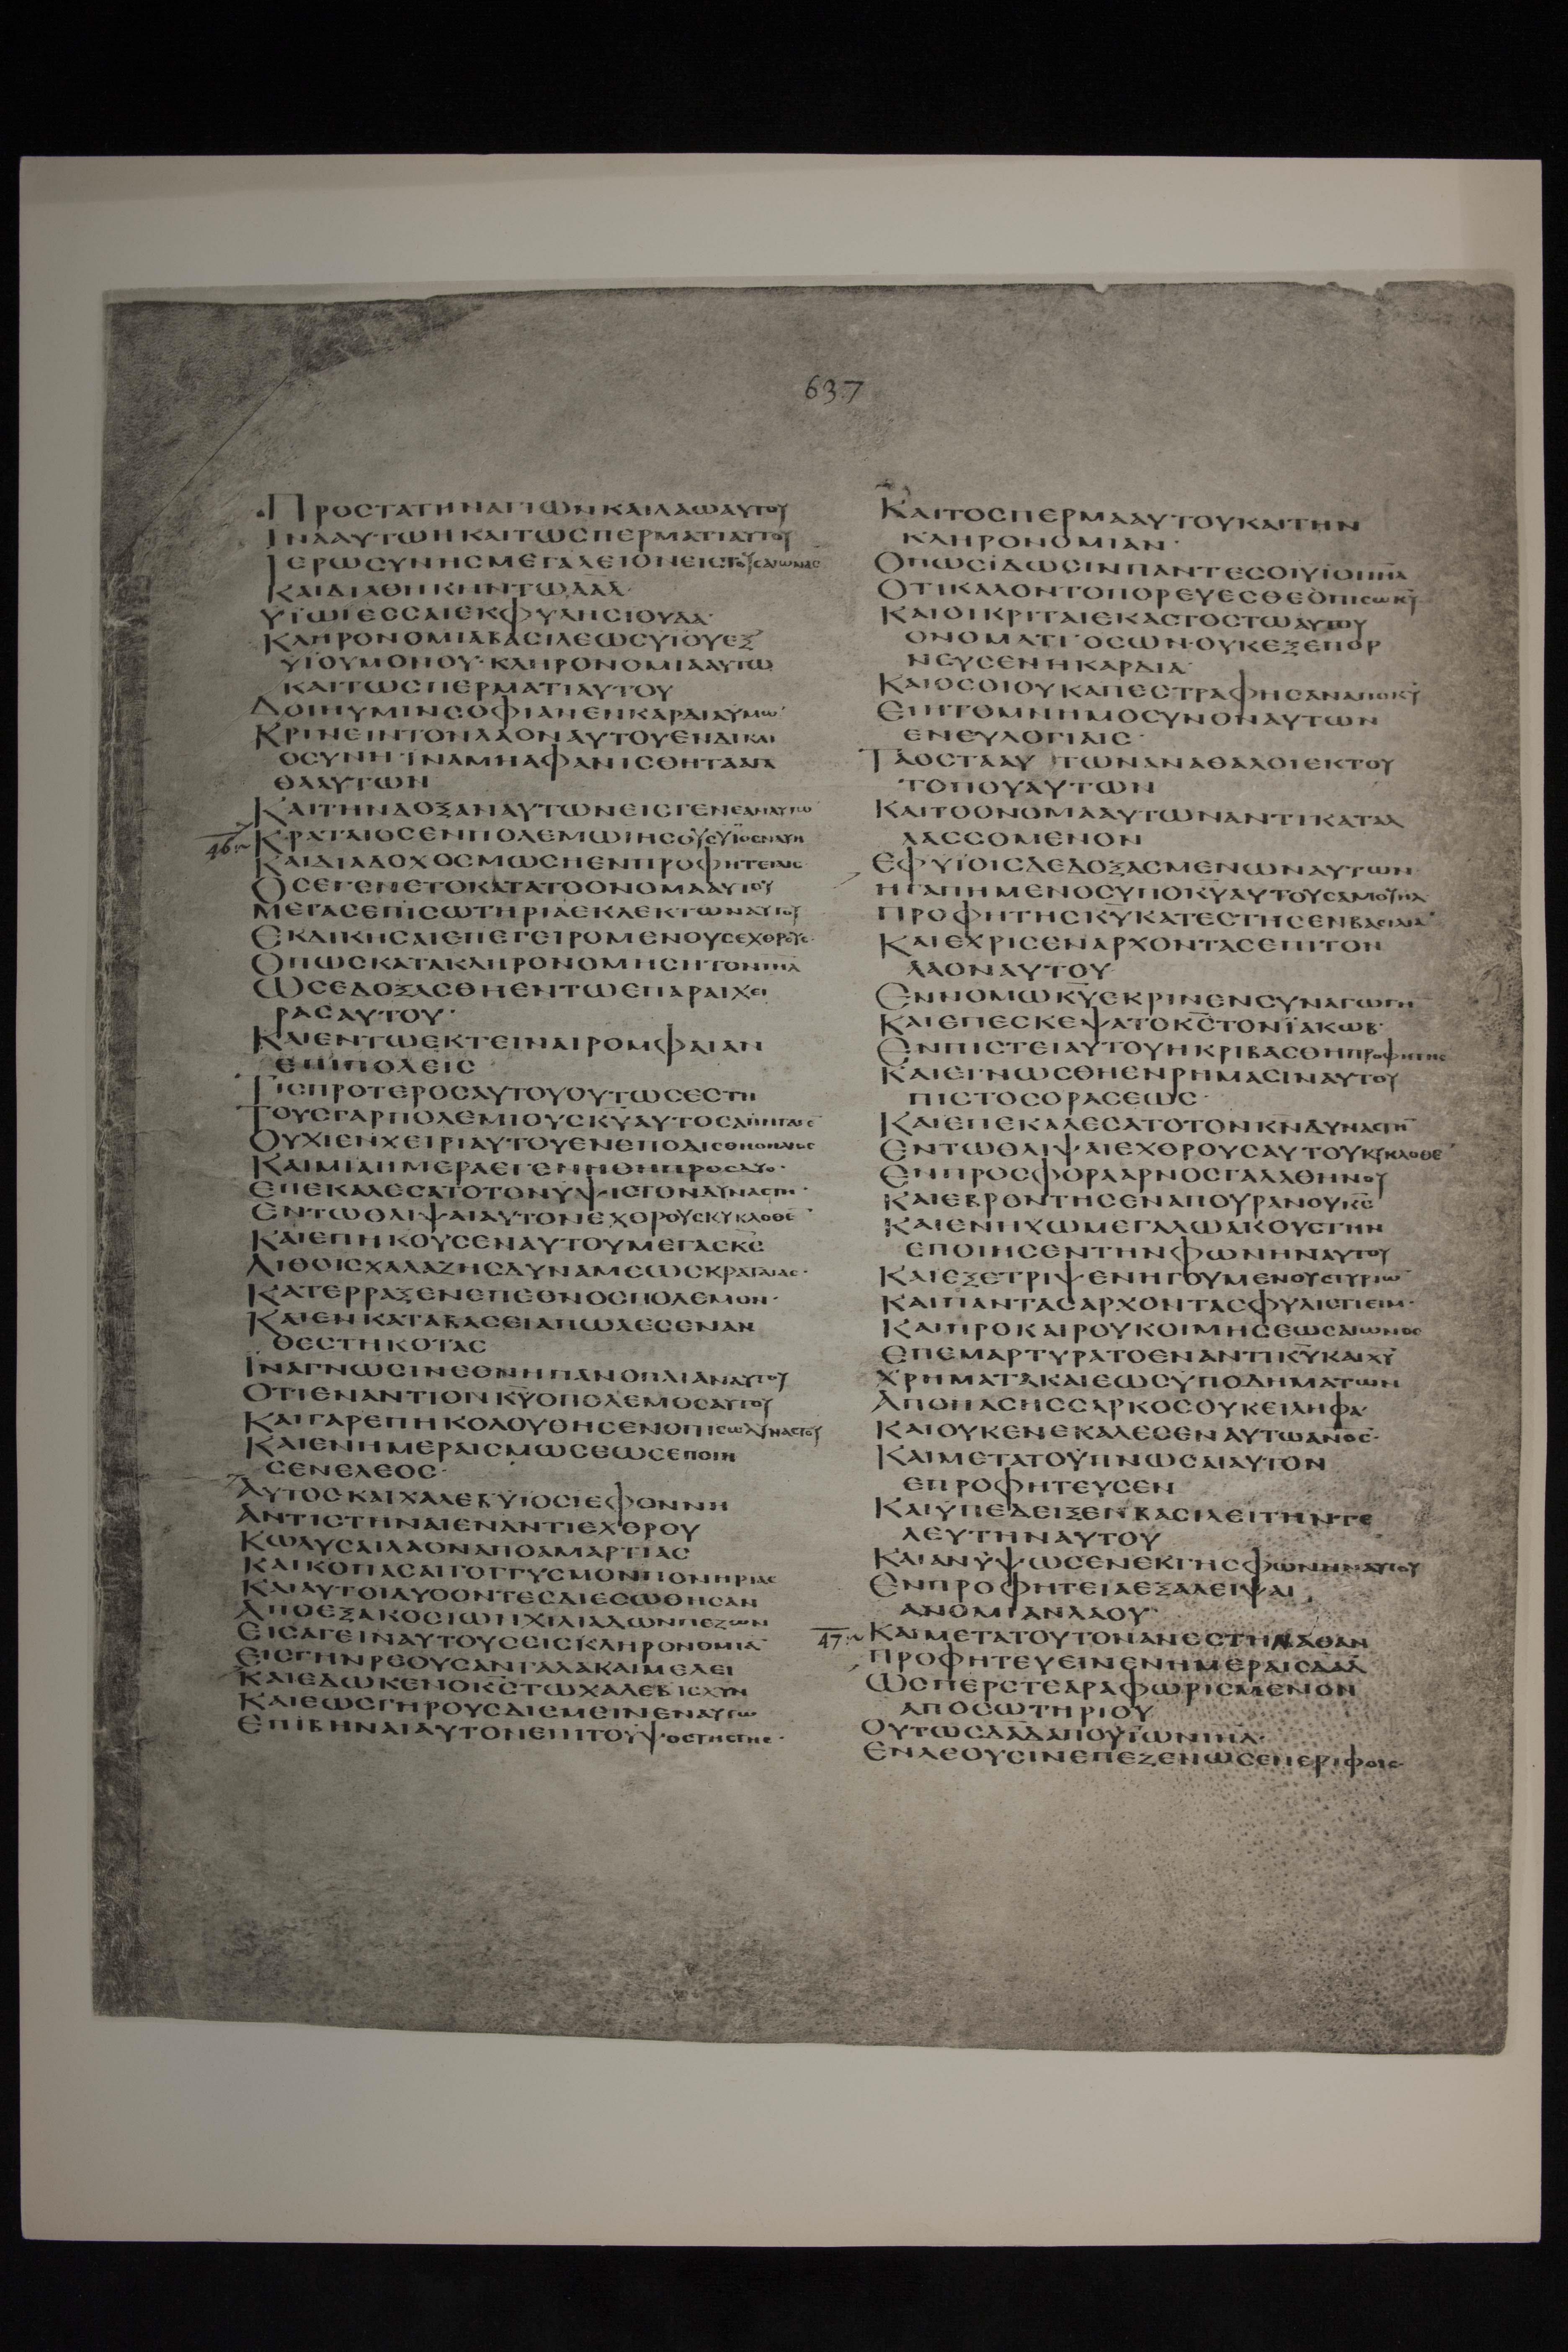 637
ΠΡΟΣΤΑΤΗΝΑΓΙΩΝΚΑΙΛΑΩΑΥΤΟΥ
ΙΝΑΑΥΤΩΗΚΑΙΤΩΣΠΕΡΜΑΤΙΑΥΤΟΥ
ΙΕΡΩΣΥΝΗΣΜΕΓΑΛΕΙΟΝΕΙΣΤΟΥΣΑΙΩΝΑΣ
ΚΑΙΔΙΑΘΗΚΗΝΤΩΔΑΔ·
ΥΪΩΙΕΣΣΑΙΕΚΦΥΛΗΣΙΟΥΔΑ·
ΚΛΗΡΟΝΟΜΙΑΒΑΣΙΛΕΩΣΥΙΟΥΕΞ
ΥΙΟΥΜΟΝΟΥ·ΚΛΗΡΟΝΟΜΙΑΑΥΤΩ
ΚΑΙΤΩΣΠΕΡΜΑΤΙΑΥΤΟΥ
ΔΟΙΗΥΜΙΝΣΟΦΙΑΝΕΝΚΑΡΔΙΑΥΜΩ
ΚΡΙΝΕΙΝΤΟΝΛΑΟΝΑΥΤΟΥΕΝΔΙΚΑΙ
ΟΣΥΝΗ·ΙΝΑΜΗΑΦΑΝΙΣΘΗΤΑΑΓΑ
ΘΑΑΥΤΩΝ
ΚΑΙΤΗΝΔΟΞΑΝΑΥΤΩΝΕΙΣΓΕΝΕΑΝΑΥΤΩ
46 ΚΡΑΤΑΙΟΣΕΝΠΟΛΕΜΩΙΗΣΟΥΣΥΪΟΣΝΑΥΗ
ΚΑΙΔΙΑΔΟΧΟΣΜΩΣΗΕΝΠΡΟΦΗΤΕΙΑΙΣ
ΟΣΕΓΕΝΕΤΟΚΑΤΑΤΟΟΝΟΜΑΑΥΤΟΥ
ΜΕΓΑΣΕΠΙΣΩΤΗΡΙΑΕΚΛΕΚΤΩΝΑΥΤΟΥ
ΕΚΔΙΚΗΣΑΙΕΠΕΓΕΙΡΟΜΕΝΟΥΣΕΧΘΡΟΥΣ·
ΟΠΩΣΚΑΤΑΚΛΗΡΟΝΟΜΗΣΗΤΟΝΙΗΛ
ΩΣΕΔΟΞΑΣΘΗΕΝΤΩΕΠΑΡΑΙΧΕΙ
ΡΑΣΑΥΤΟΥ·
ΚΑΙΕΝΤΩΕΚΤΕΙΝΑΙΡΟΜΦΑΙΑΝ
ΕΠΙΠΟΛΕΙΣ
ΤΙΣΠΡΟΤΕΡΟΣΑΥΤΟΥΟΥΤΩΣΕΣΤΗ
ΤΟΥΣΓΑΡΠΟΛΕΜΙΟΥΣΚΥΑΥΤΟΣΑΠΗΓΑΓΕ
ΟΥΧΙΕΝΧΕΙΡΙΑΥΤΟΥΕΝΕΠΟΔΙΣΘΗΟΗΛΙΟΣ
ΚΑΙΜΙΑΗΜΕΡΑΕΓΕΝΗΘΗΠΡΟΣΔΥΟ·
ΕΠΕΚΑΛΕΣΑΤΟΤΟΝΥΨΙΣΤΟΝΔΥΝΑΣΤΗ·
ΕΝΤΩΘΛΙΨΑΙΑΥΤΟΝΕΧΘΡΟΥΣΚΥΚΛΟΘΕ
ΚΑΙΕΠΗΚΟΥΣΕΝΑΥΤΟΥΜΕΓΑΣΚΣ
ΛΙΘΟΙΣΧΑΛΑΖΗΣΔΥΝΑΜΕΩΣΚΡΑΤΑΙΑΣ·
ΚΑΤΕΡΡΑΞΕΝΕΠΕΘΝΟΣΠΟΛΕΜΟΝ·
ΚΑΙΕΝΚΑΤΑΒΑΣΕΙΑΠΩΛΕΣΕΝΑΝ
ΘΕΣΤΗΚΟΤΑΣ
ΙΝΑΓΝΩΣΙΝΕΘΝΗΠΑΝΟΠΛΙΑΝΑΥΤΟΥ
ΟΤΙΕΝΑΝΤΙΟΝΚΥΟΠΟΛΕΜΟΣΑΥΤΟΥ
ΚΑΙΓΑΡΕΠΗΚΟΛΟΥΘΗΣΕΝΟΠΙΣΩΔΥΝΑΣΤΟΥ
ΚΑΙΕΝΗΜΕΡΑΙΣΜΩΣΕΩΣΕΠΟΙΗ
ΣΕΝΕΛΕΟΣ·
ΑΥΤΟΣΚΑΙΧΑΛΕΒΥΪΟΣΙΕΦΟΝΝΗ
ΑΝΤΙΣΤΗΝΑΙΕΝΑΝΤΙΕΧΘΡΟΥ
ΚΩΛΥΣΑΙΛΑΟΝΑΠΟΑΜΑΡΤΙΑΣ
ΚΑΙΚΟΠΑΣΑΙΓΟΓΓΥΣΜΟΝΠΟΝΗΡΙΑΣ
ΚΑΙΑΥΤΟΙΔΥΟΟΝΤΕΣΔΙΕΣΩΘΗΣΑΝ
ΑΠΟΕΞΑΚΟΣΙΩΝΧΙΛΙΑΔΩΝΠΕΖΩΝ
ΕΙΣΑΓΕΙΝΑΥΤΟΥΣΕΙΣΚΛΗΡΟΝΟΜΙΑ
ΕΙΣΓΗΝΡΕΟΥΣΑΝΓΑΛΑΚΑΙΜΕΛΕΙ
ΚΑΙΕΔΩΚΕΝΟΚΣΤΩΧΑΛΕΒΙΣΧΥΝ
ΚΑΙΕΩΣΓΗΡΟΥΣΔΙΕΜΕΙΝΕΝΑΥΤΩ
ΕΠΙΒΗΝΑΙΑΥΤΟΝΕΠΙΤΟΥΨΟΣΤΗΣΓΗΣ·
ΚΑΙΤΟΣΠΕΡΜΑΑΥΤΟΥΚΑΙΤΗΝ
ΚΛΗΡΟΝΟΜΙΑΝ·
ΟΠΩΣΙΔΩΣΙΝΠΑΝΤΕΣΟΙΥΪΟΙΙΗΛ
ΟΤΙΚΑΛΟΝΤΟΠΟΡΕΥΕΣΘΕΟΠΙΣΩΚΥ
ΚΑΙΟΙΚΡΙΤΑΙΕΚΑΣΤΟΣΤΩΑΥΤΟΥ
ΟΝΟΜΑΤΙ·ΟΣΩΝ·ΟΥΚΕΞΕΠΟΡ
ΝΕΥΣΕΝΗΚΑΡΔΙΑ·
ΚΑΙΟΣΟΙΟΥΚΑΠΕΣΤΡΑΦΗΣΑΝΑΠΟΚΥ
ΕΙΗΤΟΜΝΗΜΟΣΥΝΟΝΑΥΤΩΝ
ΕΝΕΥΛΟΓΙΑΙΣ·
ΤΑΟΣΤΑΑΥΤΩΝΑΝΑΘΑΛΟΙΕΚΤΟΥ
ΤΟΠΟΥΑΥΤΩΝ
ΚΑΙΤΟΟΝΟΜΑΑΥΤΩΝΑΝΤΙΚΑΤΑΛ
ΛΑΣΣΟΜΕΝΟΝ
ΕΦΥΪΟΙΣΔΕΔΟΞΑΣΜΕΝΩΝΑΥΤΩΝ
ΗΓΑΠΗΜΕΝΟΣΥΠΟΚΥΑΥΤΟΥΣΑΜΟΥΗΛ
ΠΡΟΦΗΤΗΣΚΥΚΑΤΕΣΤΗΣΕΝΒΑΣΙΛΙΑ
ΚΑΙΕΧΡΙΣΕΝΑΡΧΟΝΤΑΣΕΠΙΤΟΝ
ΛΑΟΝΑΥΤΟΥ
ΕΝΝΟΜΩΚΥΕΚΡΙΝΕΝΣΥΝΑΓΩΓΗ
ΚΑΙΕΠΕΣΚΕΨΑΤΟΚΣΤΟΝΪΑΚΩΒ·
ΕΝΠΙΣΤΕΙΑΥΤΟΥΗΚΡΙΒΑΣΘΗΠΡΟΦΗΤΗΣ
ΚΑΙΕΓΝΩΣΘΗΕΝΡΗΜΑΣΙΝΑΥΤΟΥ
ΠΙΣΤΟΣΟΡΑΣΕΩΣ·
ΚΑΙΕΠΕΚΑΛΕΣΑΤΟΤΟΝΚΝΔΥΝΑΣΤΗ
ΕΝΤΩΘΛΙΨΑΙΕΧΘΡΟΥΣΑΥΤΟΥΚΥΚΛΟΘΕ
ΕΝΠΡΟΣΦΟΡΑΑΡΝΟΣΓΑΛΑΘΗΝΟΥ
ΚΑΙΕΒΡΟΝΤΗΣΕΝΑΠΟΥΡΑΝΟΥΚΣ
ΚΑΙΕΝΗΧΩΜΕΓΑΛΩΑΚΟΥΣΤΗΝ
ΕΠΟΙΗΣΕΝΤΗΝΦΩΝΗΝΑΥΤΟΥ
ΚΑΙΕΞΕΤΡΙΨΕΝΗΓΟΥΜΕΝΟΥΣΤΥΡΙΩ
ΚΑΙΠΑΝΤΑΣΑΡΧΟΝΤΑΣΦΥΛΙΣΤΙΕΙΜ·
ΚΑΙΠΡΟΚΑΙΡΟΥΚΟΙΜΗΣΕΩΣΑΙΩΝΟΣ
ΕΠΕΜΑΡΤΥΡΑΤΟΕΝΑΝΤΙΚΥΚΑΙΧΥ
ΧΡΗΜΑΤΑΚΑΙΕΩΣΥΠΟΔΗΜΑΤΩΝ
ΑΠΟΠΑΣΗΣΣΑΡΚΟΣΟΥΚΕΙΛΗΦΑ·
ΚΑΙΟΥΚΕΝΕΚΑΛΕΣΕΝΑΥΤΩΑΝΟΣ·
ΚΑΙΜΕΤΑΤΟΥΠΝΩΣΑΙΑΥΤΟΝ
ΕΠΡΟΦΗΤΕΥΣΕΝ
ΚΑΙΥΠΕΔΕΙΞΕΝΒΑΣΙΛΕΙΤΗΝΤΕ
ΛΕΥΤΗΝΑΥΤΟΥ
ΚΑΙΑΝΥΨΩΣΕΝΕΚΓΗΣΦΩΝΗΝΑΥΤΟΥ
ΕΝΠΡΟΦΗΤΕΙΑΕΞΑΛΕΙΨΑΙ
ΑΝΟΜΙΑΝΛΑΟΥ·
47 ΚΑΙΜΕΤΑΤΟΥΤΟΝΑΝΕΣΤΗΝΑΘΑΝ
ΠΡΟΦΗΤΕΥΕΙΝΕΝΗΜΕΡΑΙΣΔΑΔ
ΩΣΠΕΡΣΤΕΑΡΑΦΩΡΙΣΜΕΝΟΝ
ΑΠΟΣΩΤΗΡΙΟΥ
ΟΥΤΩΣΔΑΔΑΠΟΥΪΩΝΙΗΛ·
ΕΝΛΕΟΥΣΙΝΕΠΕΖΕΝΩΣΕΝΕΡΙΦΟΙΣ·